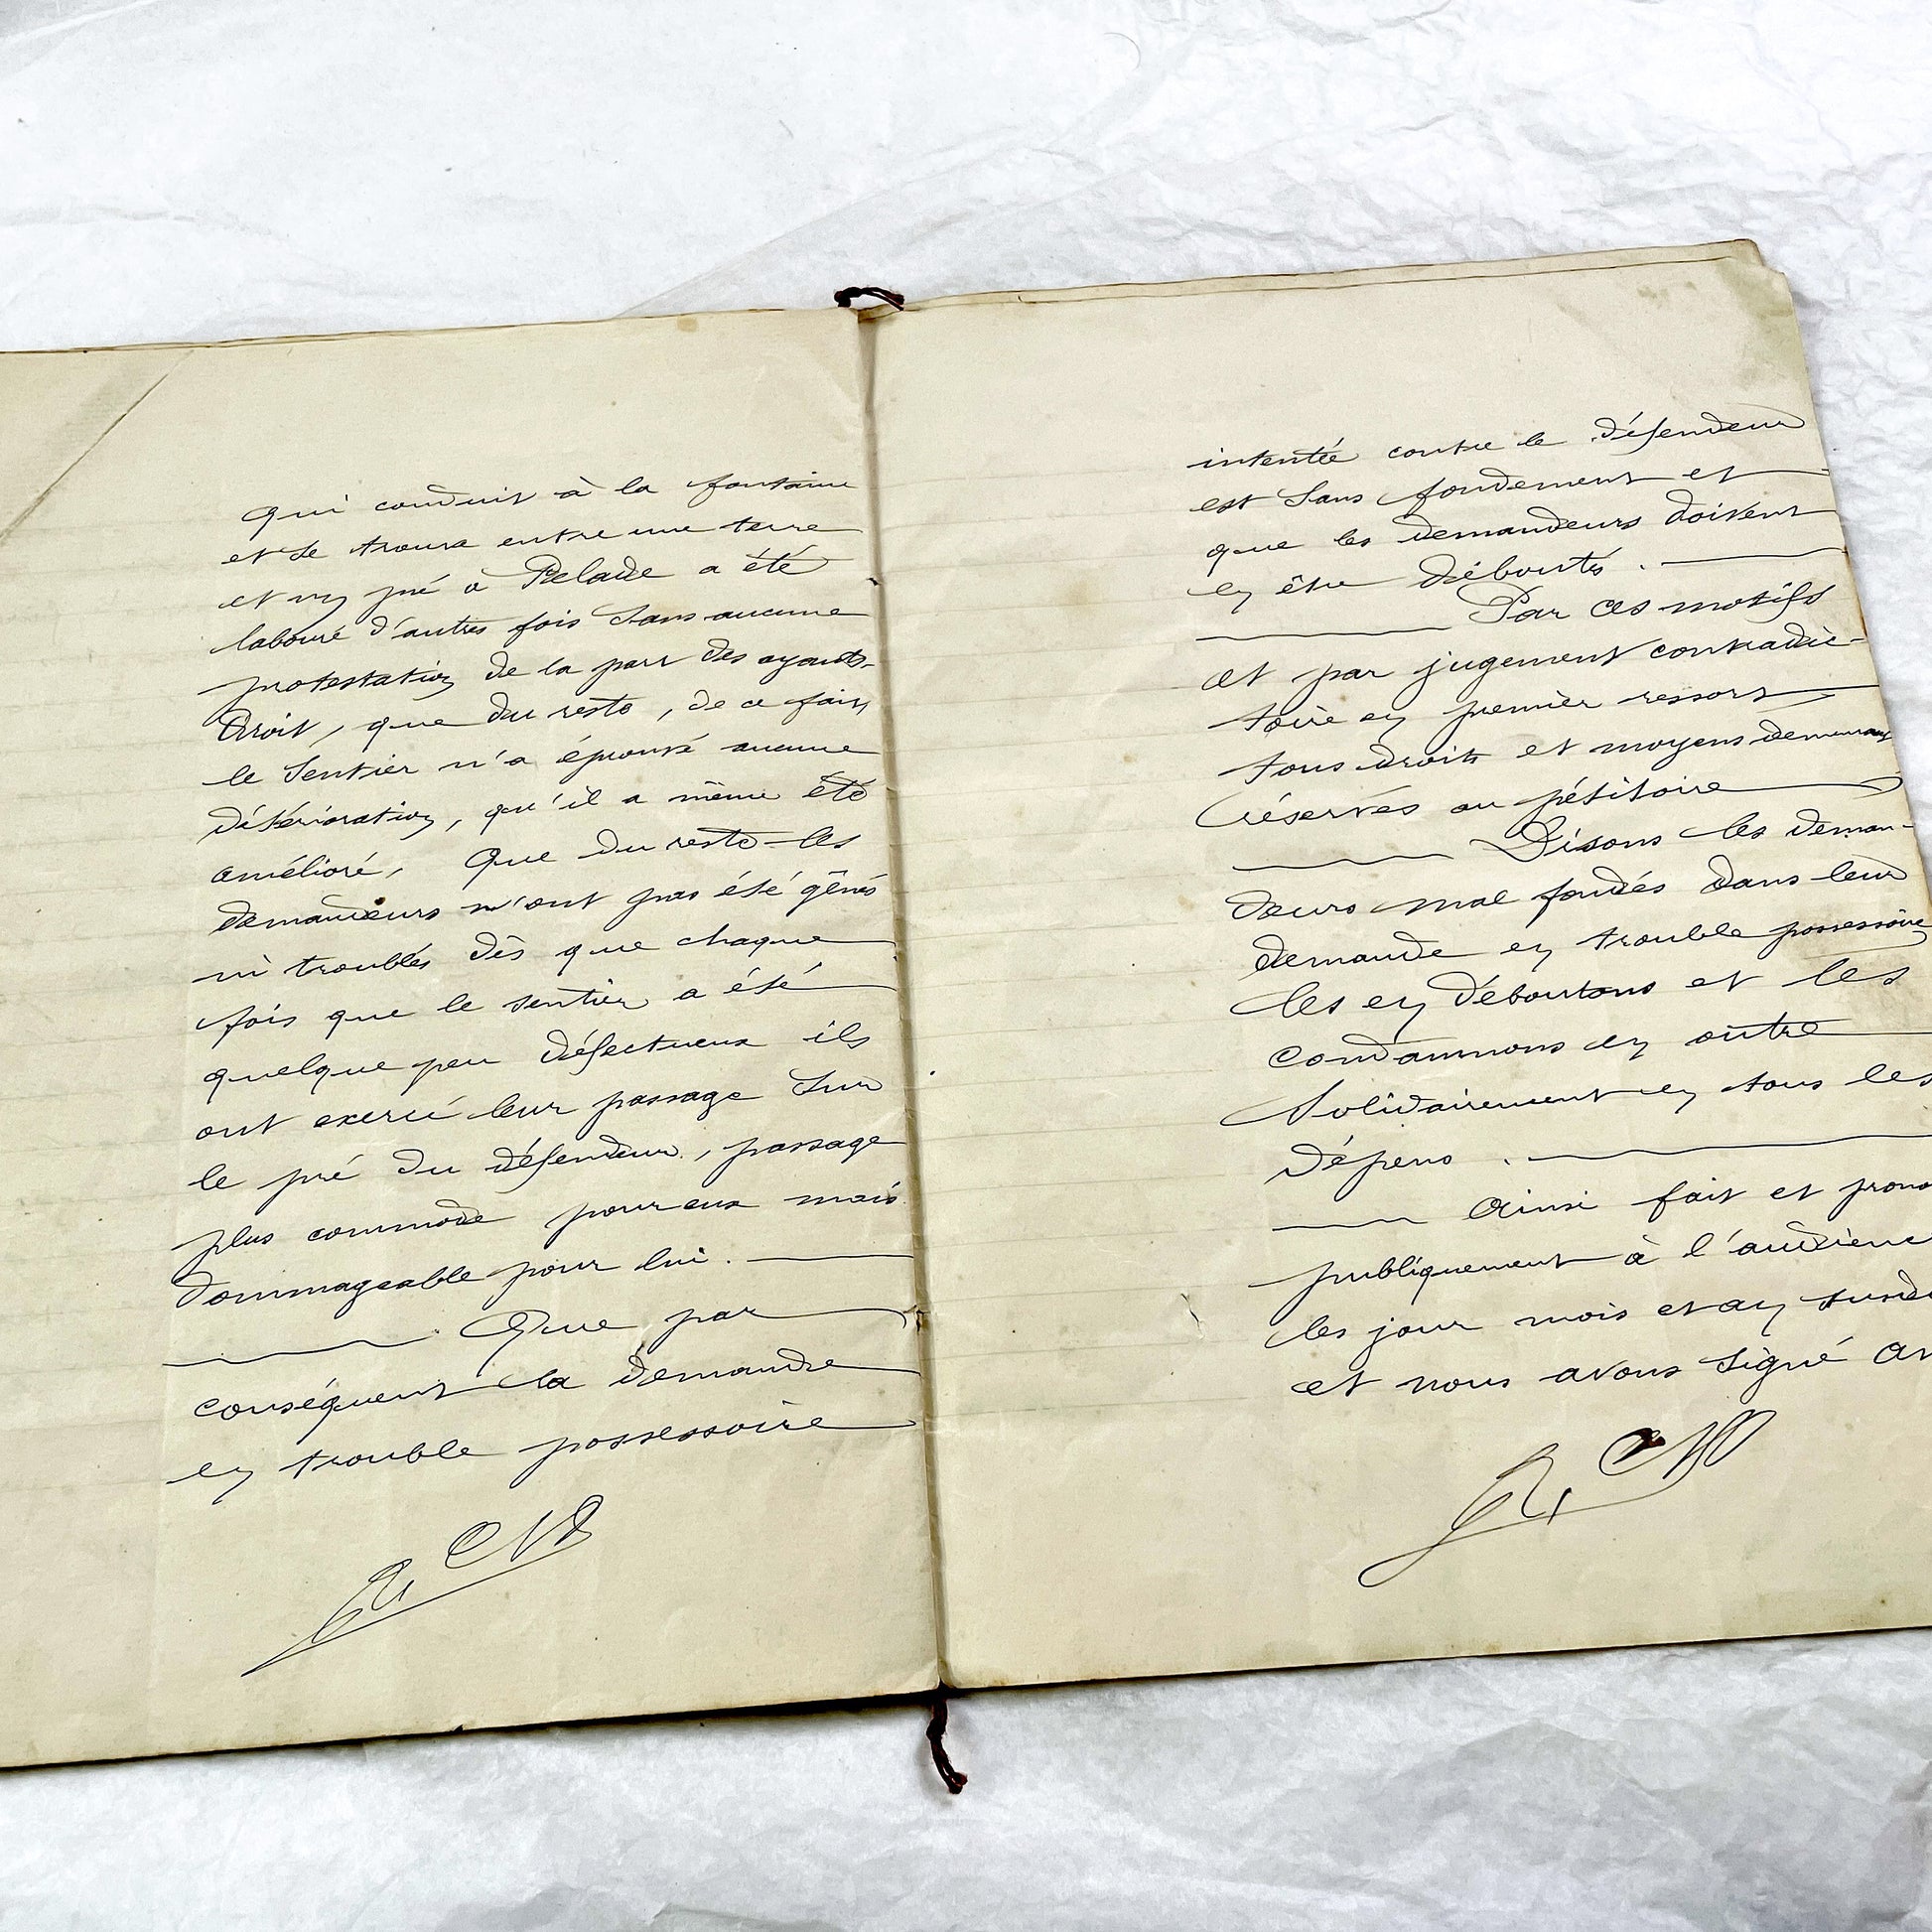 qui conduit à la fontaine
et se trouve entre une terre
et un pré à Pelade a été
labouré d'autres fois sans aucune
protestation de la part des ayants-
droit, que du reste, de ce fait,
le sentier n'a éprouvé aucune
détérioration, qu'il a même été
amélioré, que du reste les
demandeurs n'ont pas été gênés
ni troublés dès que chaque
fois que le sentier a été
quelque peu défectueux ils
ont exercé leur passage sur
le pré du défendeur, passage
plus commode pour eux mais
dommageable pour lui.
Que par
conséquent la demande
en trouble possessoire
intentée contre le défendeur
est sans fondement et
que les demandeurs doivent
en être déboutés.
Par ces motifs
et par jugement contradic-
toire en premier ressort
tous droits et moyens demeurant
réservés au pétitoire
Disons les deman-
deurs mal fondés dans leur
demande en trouble possessoire
les en déboutons et les
condamnons en outre
solidairement en tous les
dépens.
Ainsi fait et prono
publiquement à l'audience
les jour mois et an susdi
et nous avons signé av